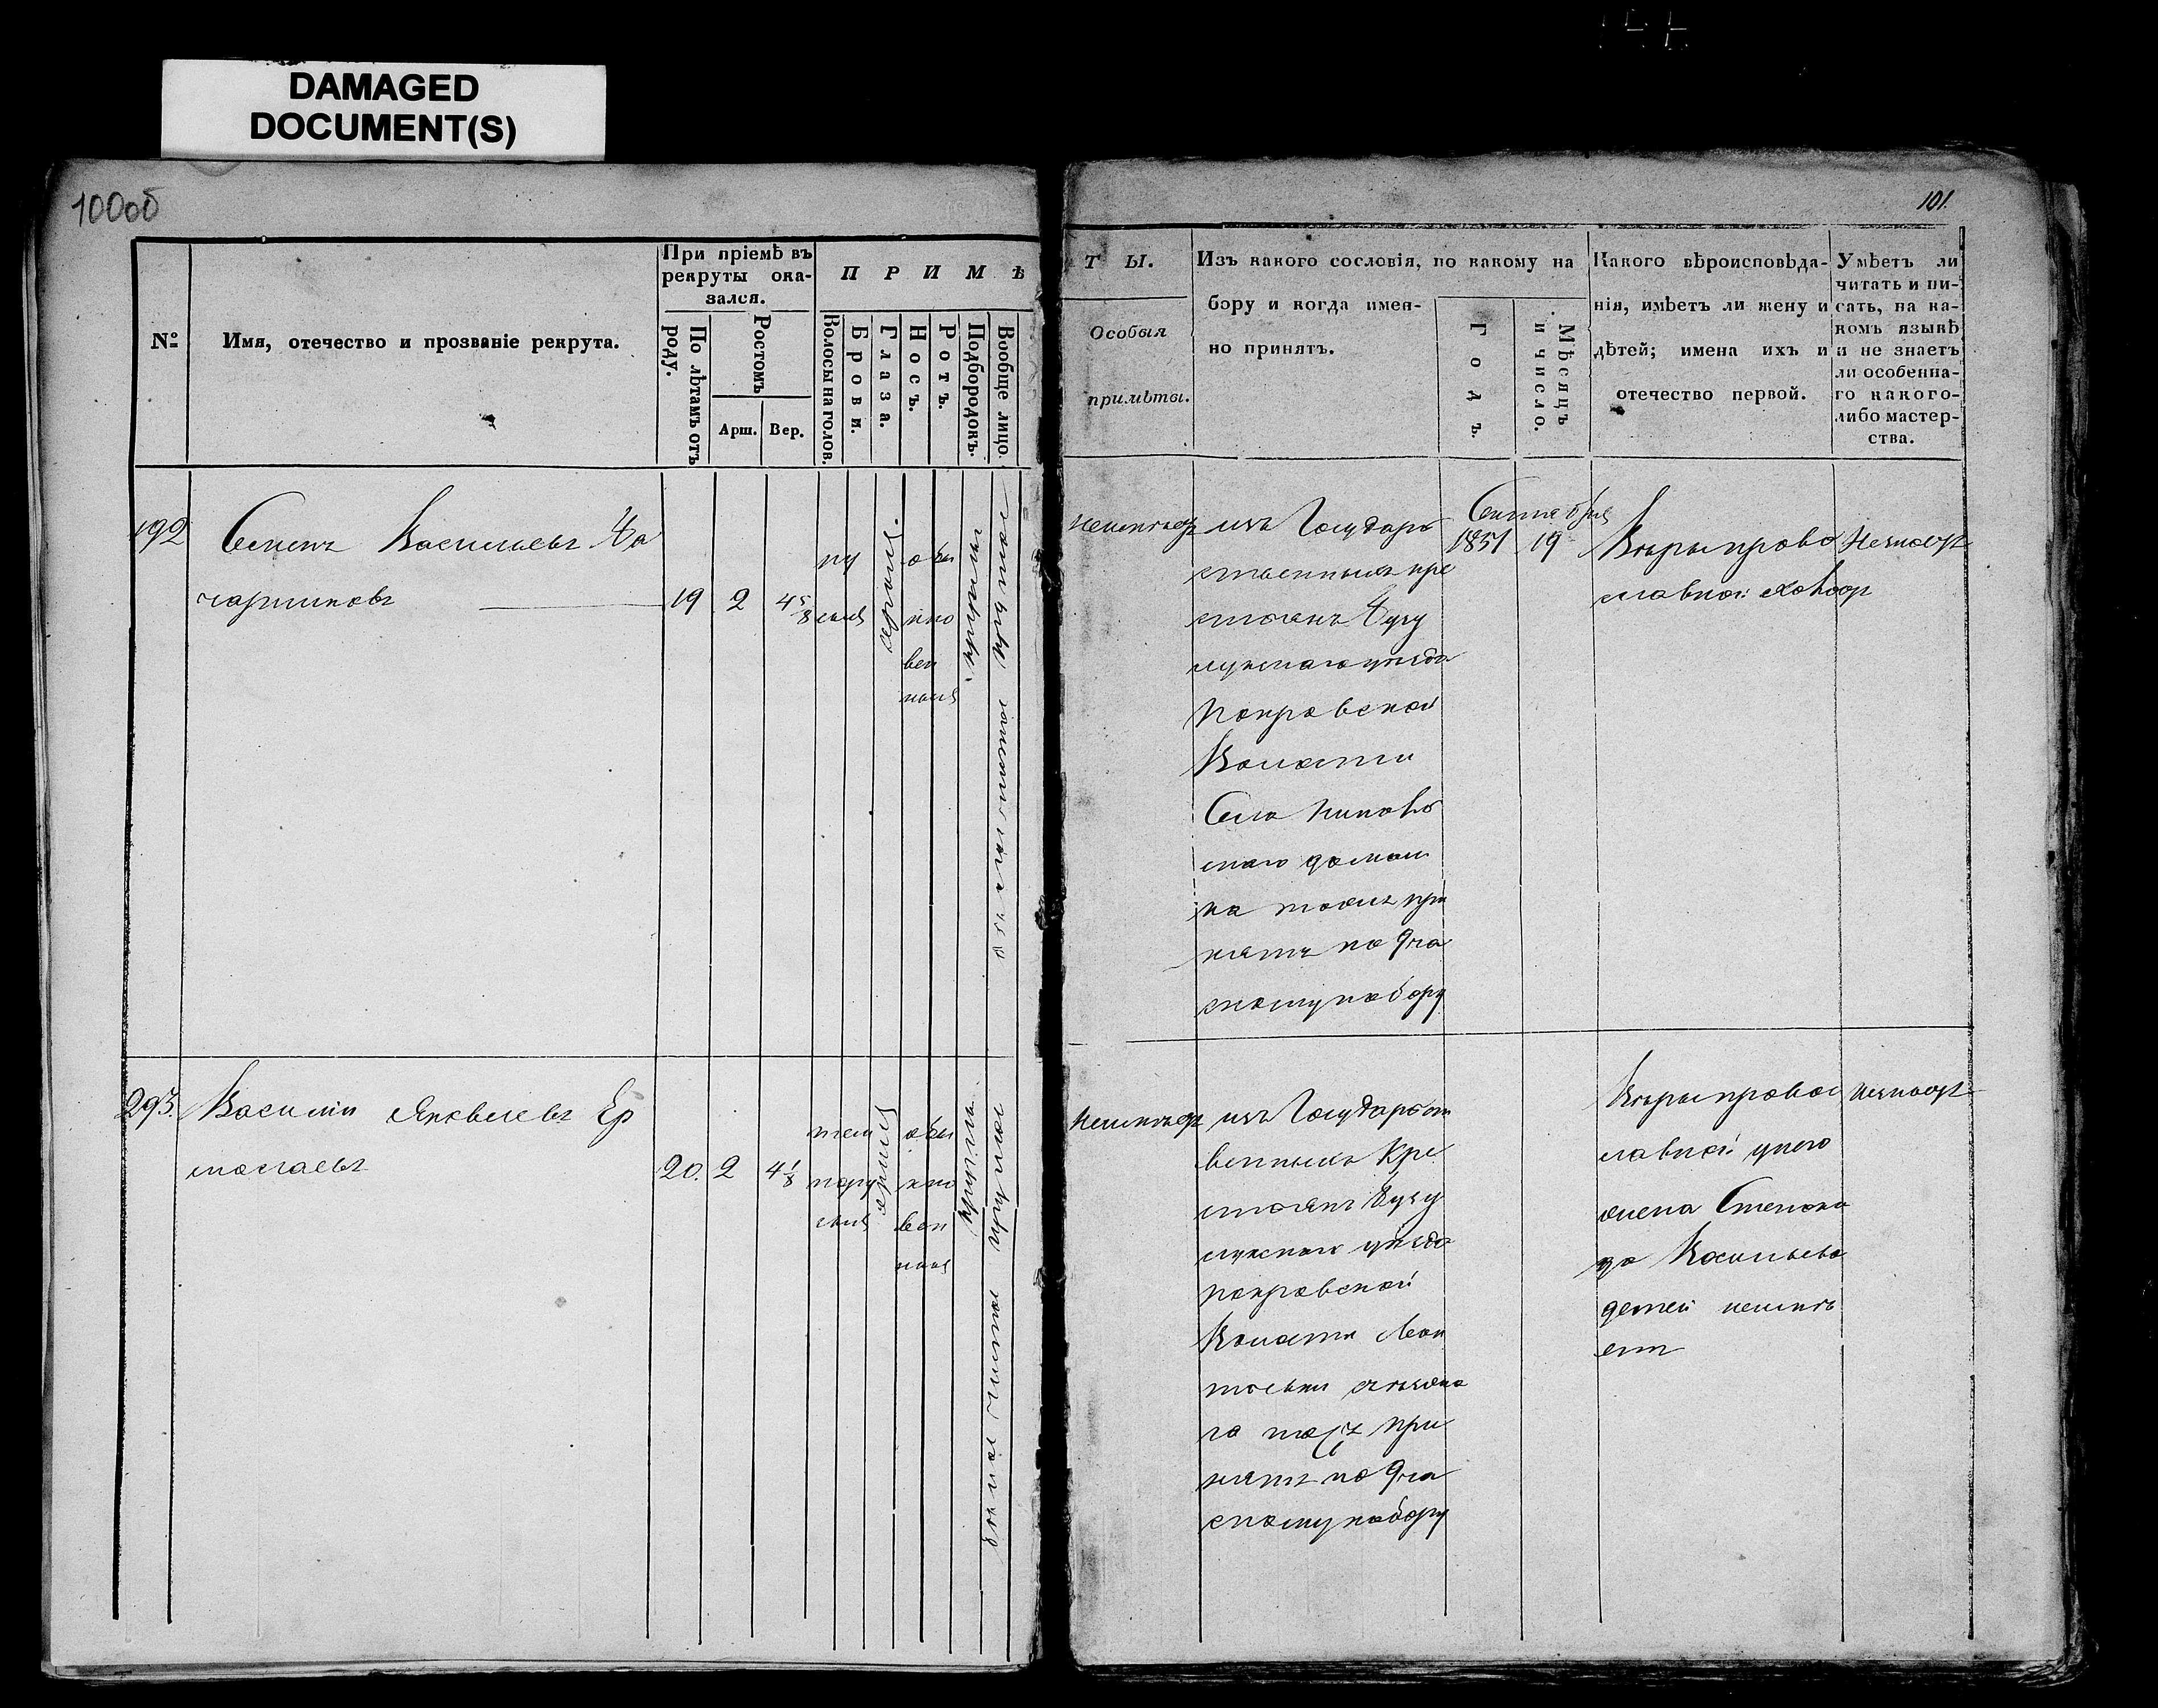 DAMAGED
DOCUMENT(S)
100об
101.
№
Имя, отечество и прозваніе рекрута.
При пріемѣ въ
рекруты ока-
зался.
По лѣтамъ отъ
роду.
Ростомъ
Арш.
Вер.
П Р И М Ѣ
Волосы на голов.
Брови.
Глаза.
Носъ.
Ротъ.
Подбородокъ.
Вообще лицо.
Т Ы.
Особыя
примѣты.
Изъ какого сословія, по какому на
бору и когда имен-
но принятъ.
Годъ.
Мѣсяцъ
и число.
Какого вѣроисповѣда-
нія, имѣетъ ли жену и
дѣтей; имена ихъ и
отечество первой.
Умѣетъ ли
читать и пи-
сать, на ка-
комъ языкѣ
и не знаетъ
ли особенна-
го какого-
либо мастер-
ства.
192
Семенъ Васильевъ
19 2 4 5/8
ру
сыя
серыя.
обы
кно
вен
ныя
круглый
неимѣетъ
изъ Государ
ственныхъ кре
стьянъ Бузу
лукскаго уѣзда
Покровской
Волости
Села
на
нятъ по 9 ча
стному набору
Сентября
1851 19
Вѣры право
славной холост
Незнаетъ
293.
Василий Яковлевъ Ер
молаевъ
20. 2 4 1/8
тем
нору
сыя
серыя
обы
кно
вен
ныя
круглый
Неимѣетъ
изъ Государст
венныхъ Кре
стьянъ Бузу
лукскаго уѣзда
Покровской
Волости
при
нятъ по 9 ча
стному набору
Вѣры право
славной у него
жена Степани
да Васильева
детей неимѣ
етъ
незнаетъ